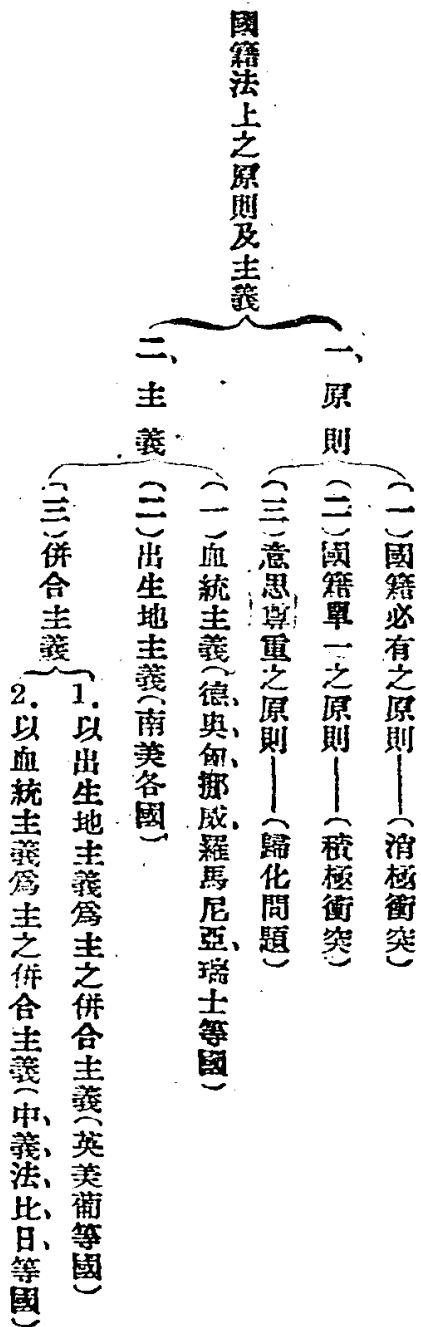 國籍法上之原則及主義
一、原則
(一)國籍必有之原則——(消極衝突)
(二)國籍單一之原則——(積極衝突)
(三)意思尊重之原則——(歸化問題)
二、主義
(一)血統主義(德、奥、匈、挪威、羅馬尼亞、瑞士等國)
(二)出生地主義(南美各國)
(三)併合主義
1.以出生地主義爲主之併合主義(英美葡等國)
2.以血統主義爲主之併合主義(中、義、法、比、日、等國)